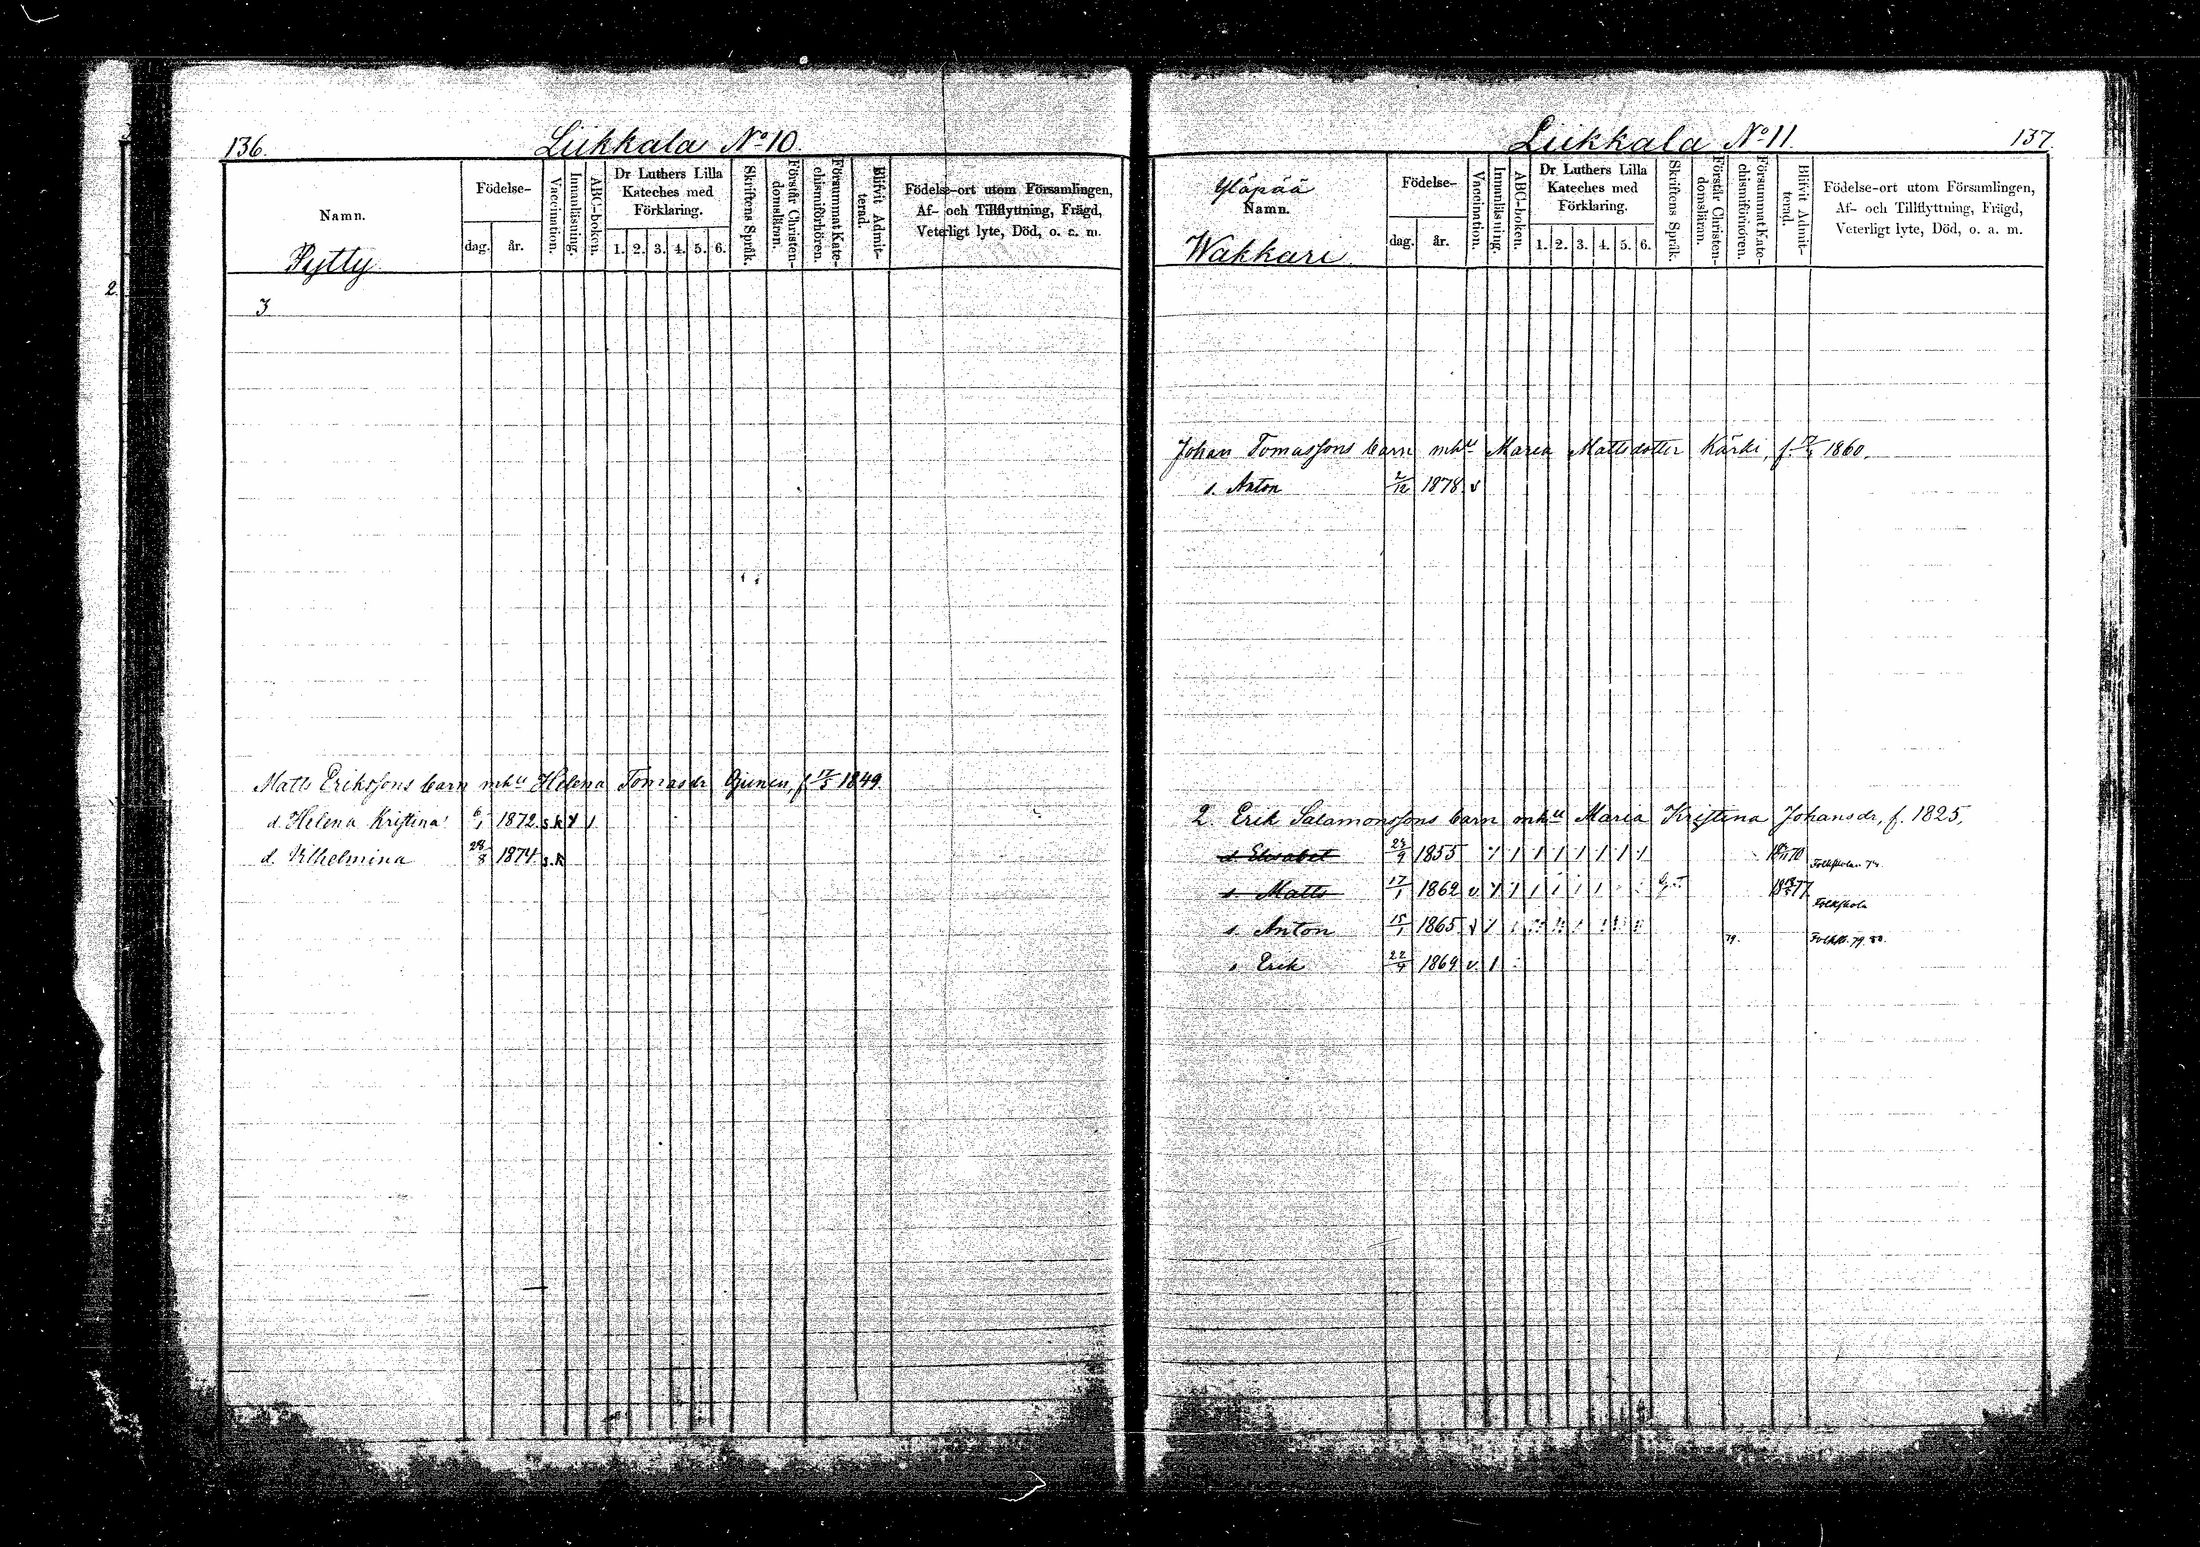 136.
Liikkala No 10.
Namn.
Pytty
Födelse-
dag.
år.
Vaccination.
Innanläsning.
ABC-boken.
Dr Luthers Lilla
Kateches med
Förklaring.
1. 2. 3. 4. 5. 6.
Skriftens Språk.
Förstår Christen-
domsläran.
Försummat Kate-
chismiförhören.
Blifvit Admit-
terad.
Födelse-ort utom Församlingen,
Af- och Tillflyttning, Frägd,
Veterligt lyte, Död, o. a. m.
2.
3
Matts Erikssons barn mhu Helena Tomasdr f. 17/5 1849
d. Helena Kristina 6/1 1872 s.k
d. Vilhelmina 28/8 1874 s.k
Liikkala No 11.
137.
Yläpää
Namn.
Wakkari
Födelse-
dag.
år.
Vaccination.
Innanläsning.
ABC-boken.
Dr Luthers Lilla
Kateches med
Förklaring.
1. 2. 3. 4. 5. 6.
Skriftens Språk.
Förstår Christen-
domsläran.
Försummat Kate-
chismiförhören.
Blifvit Admit-
terad.
Födelse-ort utom Församlingen,
Af- och Tillflyttning, Frägd,
Veterligt lyte, Död, o. a. m.
Johan Tomassons barn mhu Maria Mattsdotter Kärki, f. 1860.
s. Anton 2/12 1878 v
2. Erik Salamonssons barn mhu Maria Kristina Johansdr, f. 1825,
d. Elisabet 23/9 1855
s. Matts 17/1 1862 v Folkskola
s. Anton 15/1 1865 v 79. Folksk. 79. 80.
s. Erik 22/4 1869 v.